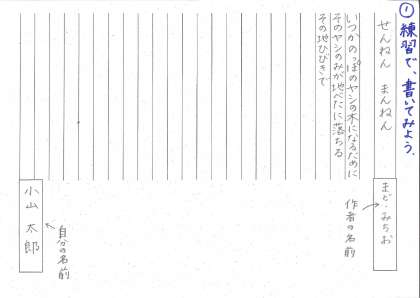 ①練習で、書いてみよう。
せんねん　まんねん
まど・みちお
作者の名前
いつかのっぽのヤシの木になるために
そのヤシのみが地べたに落ちる
その地ひびきで
自分の名前
小山　太郎